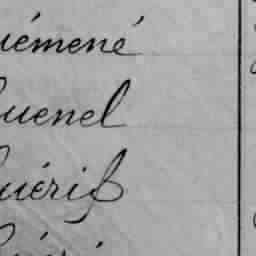 uémené
uenel
uérif